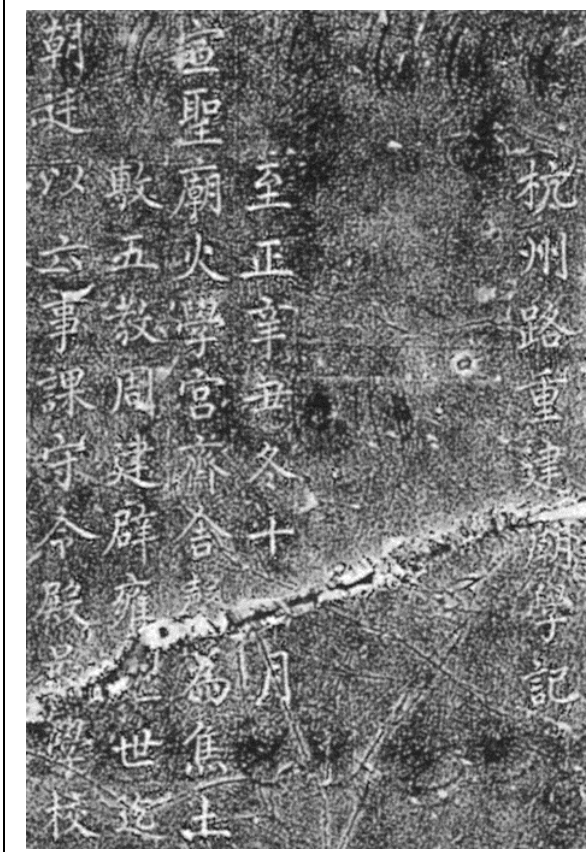 杭州路重建廟學記
至正辛丑冬十月
宣聖廟火學宮齊舍為焦土
敷五教周建辟雍世迄
朝廷以六事課守令殿學校